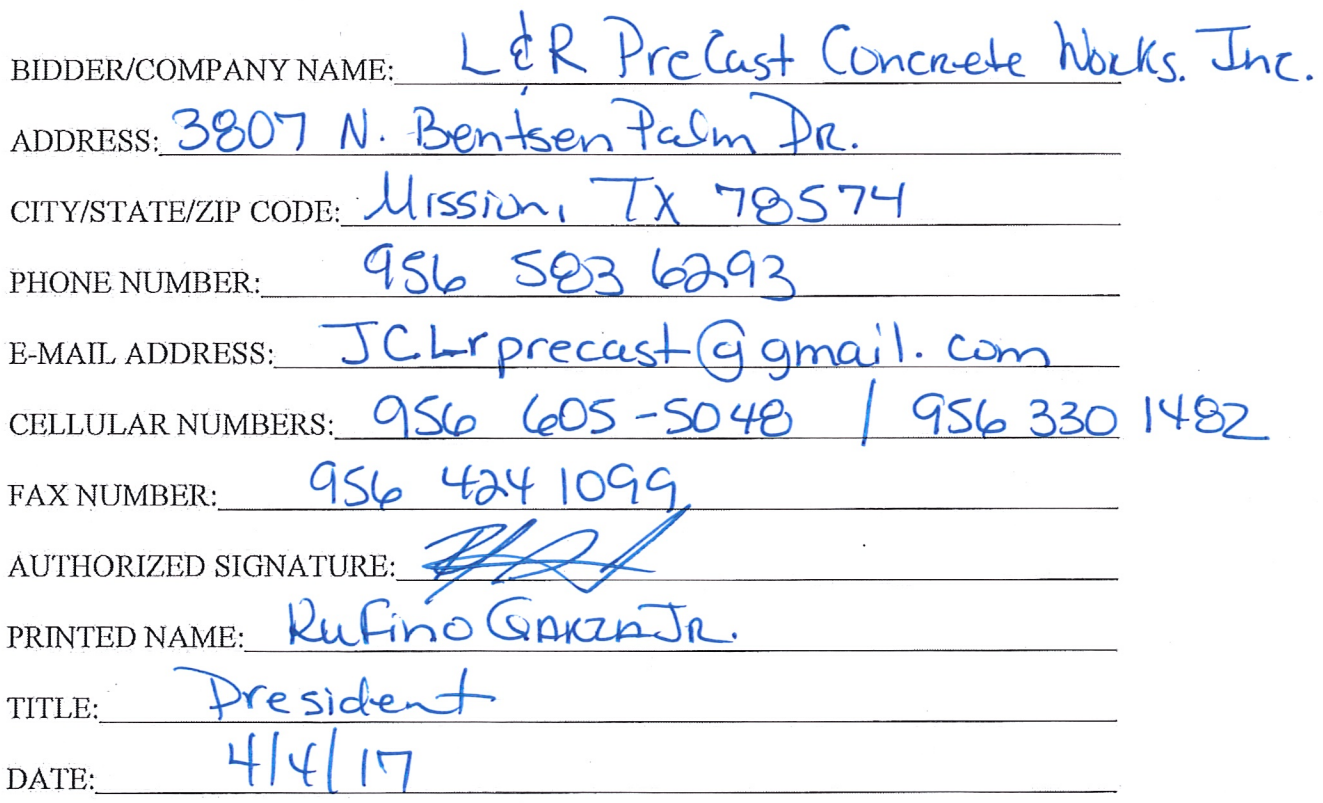 BIDDER/COMPANY NAME: L & R PreCast Concrete Works. Inc.
ADDRESS: 3807 N. Bentsen Palm DR.
CITY/STATE/ZIP CODE: Mission, TX 78574
PHONE NUMBER: 956 583 6293
E-MAIL ADDRESS: JCLrprecast@gmail.com
CELLULAR NUMBERS: 956 605-5048 / 956 330 1482
FAX NUMBER: 956 424 1099
AUTHORIZED SIGNATURE:
PRINTED NAME: Rufino GARZA JR.
TITLE: President
DATE: 4/4/17